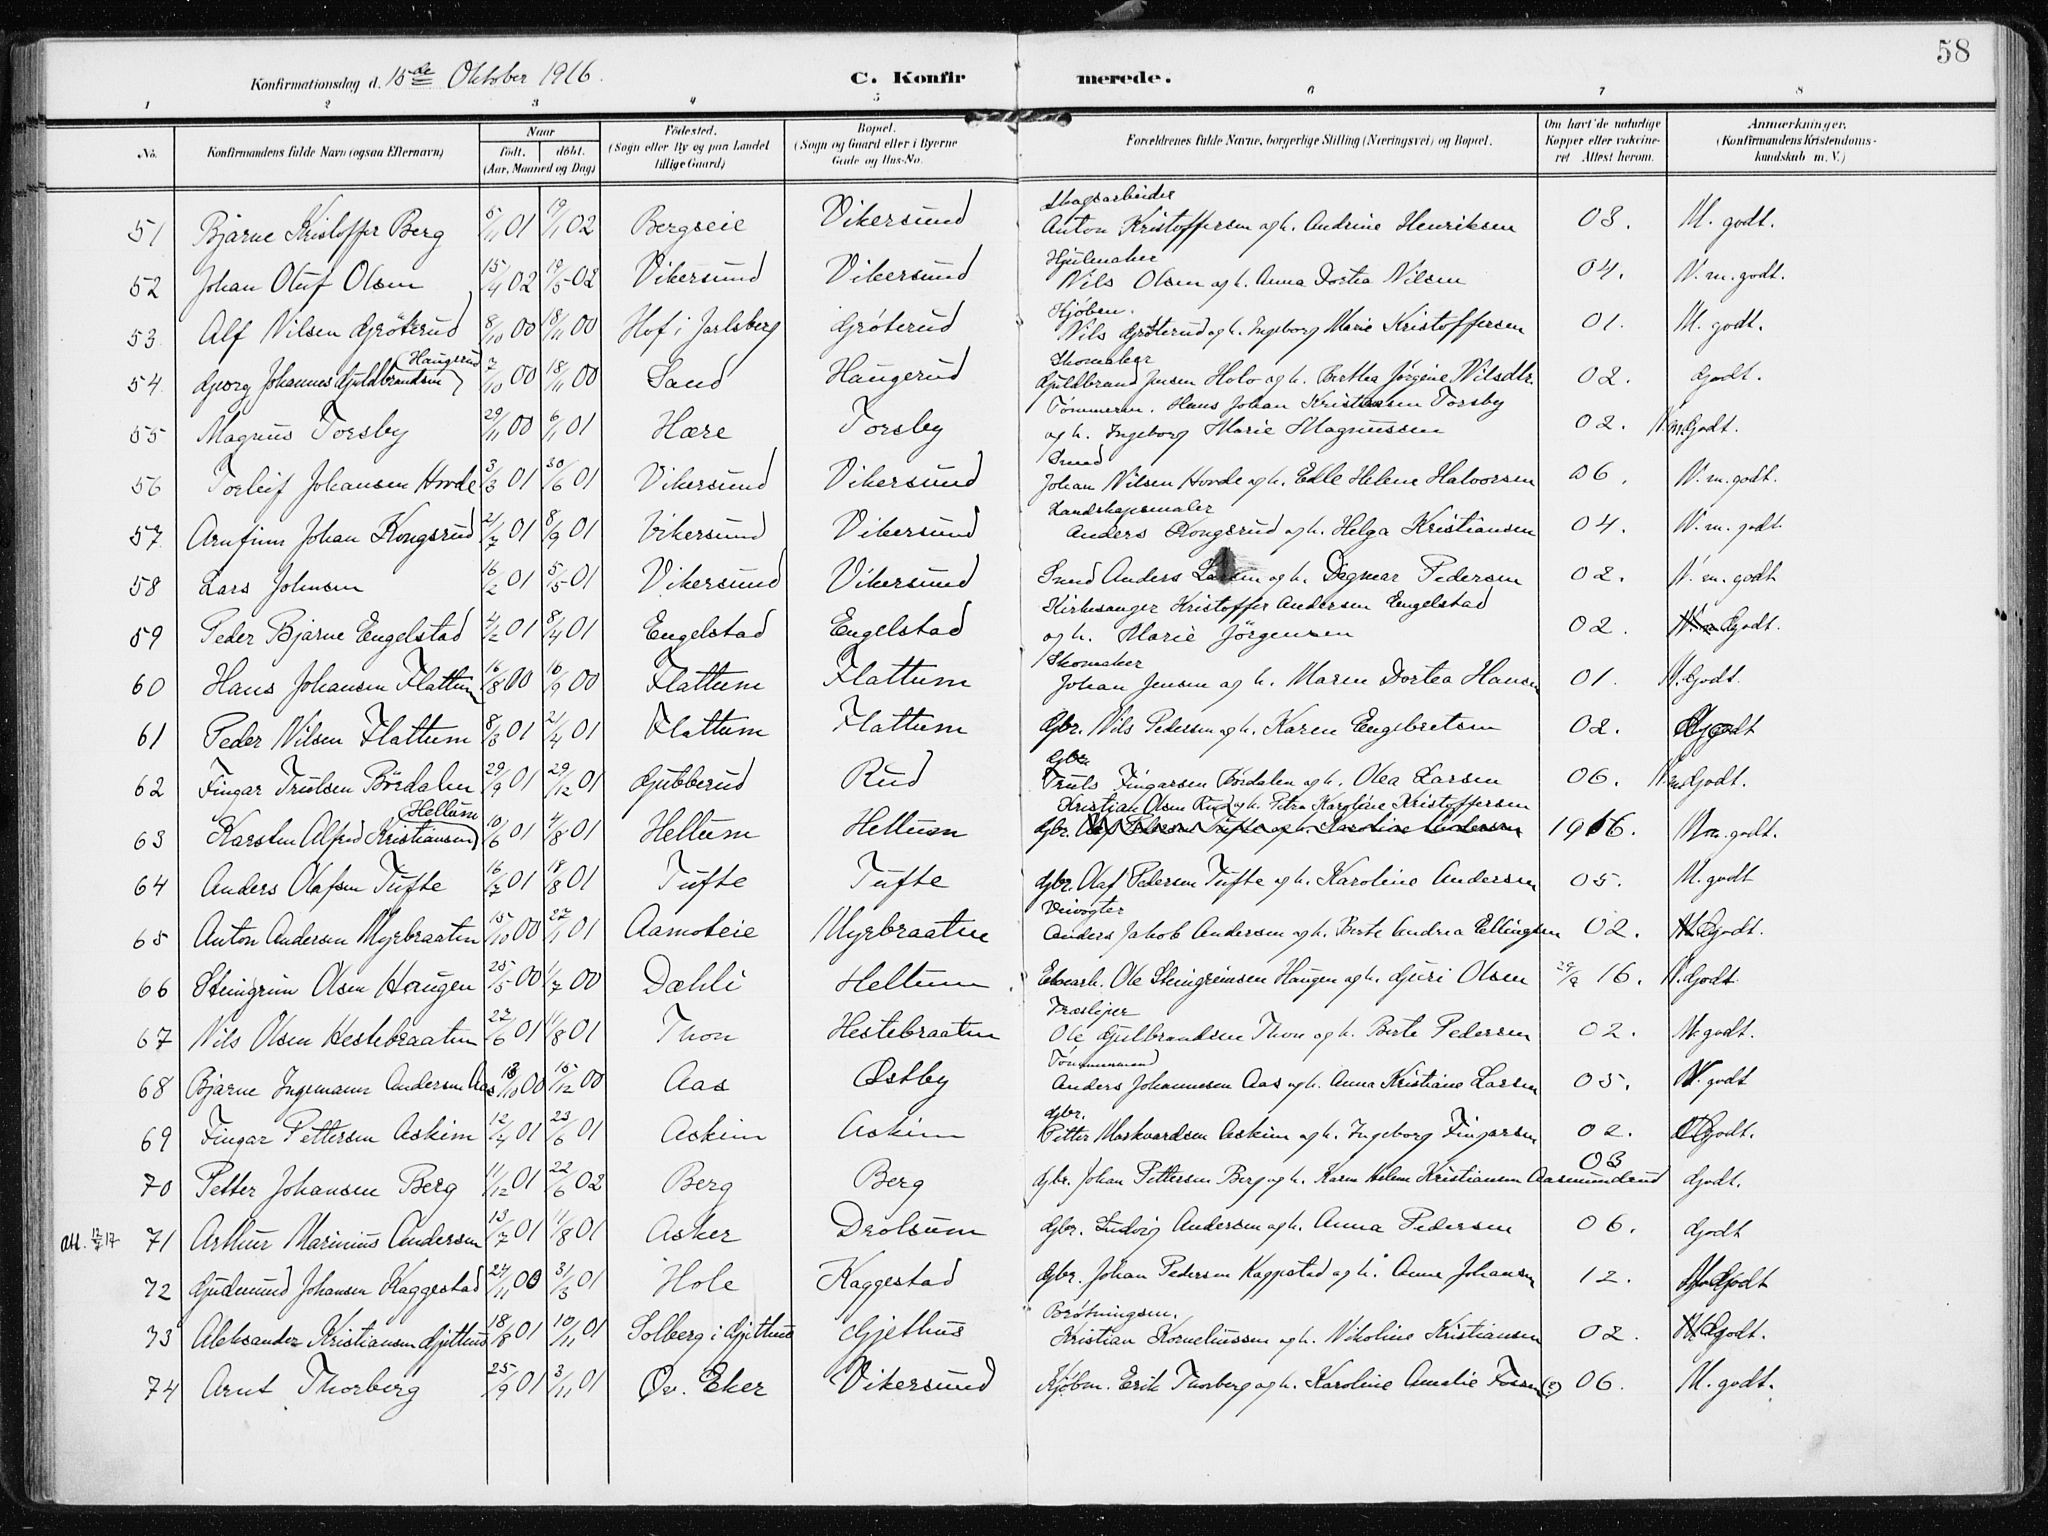 58
Konfirmationsdag d. 15de Oktober 1916. C. Konfirmerede.
1 2 3 4 5 6 7 8
No. Konfirmandens fulde Navn (ogsaa Efternavn) Naar født. døbt. (Aar, Maaned og Dag) Fødested. (Sogn eller By og paa Landet tillige Gaard) Bopæl. (Sogn og Gaard eller i Byerne Gade og Hus-No. Forældrenes fulde Navne, borgerlige Stilling (Næringsvei) og Bopæl. Om havt de naturlige Kopper eller vakcineret Attest herom. Anmærkninger. (Konfirmandens Kristendomskundskab m. V.)
Skogsarbeider
51 Bjarne Kristoffer Berg 5/11 01 19/1 02 Bergseie Vikersund Anton Kristoffersen og h. Andrine Henriksen 03. M. godt.
Hjulmaker
52 Johan Oluf Olsen 15/4 02 19/5 02 Vikersund Vikersund Nils Olsen og h. Anna Dortea Nilsen 04. N. m. godt.
Kjøbm.
53 Alf Nilsen Grøterud 8/10 00 18/11 00 Hof i Jarlsberg Grøterud Nils Grøterud og h. Ingeborg Marie Kristoffersen 01. M. godt.
Haugerud Skomaker
54 Georg Johannes Guldbrandsen 7/10 00 18/11 00 Sand Haugerud Guldbrand Jensen Holo og h. Berthea Jørgine Nilsdtr. 02. Godt.
Tømmerm. Hans Johan Kristiansen Torsby
55 Magnus Torsby 29/11 00 6/1 01 Hære Torsby og h. Ingeborg Marie Magnussen 02. Godt.
Smed
56 Torleif Johansen Hovde 3/3 01 30/6 01 Vikersund Vikersund Johan Nilsen Hovde og h. Edle Helene Halvorsen 06. N. m. godt.
Landskapsmaler
57 Arnfinn Johan Kongsrud 21/7 01 8/9 01 Vikersund Vikersund Anders Kongsrud og h. Helga Kristiansen 04. N. m. godt.
58 Lars Johnsen 16/2 01 5/5 01 Vikersund Vikersund Smed Anders Larsen og h. Dagmar Pedersen 02. N. m. godt
Kirkesanger Kristoffer Andersen Engelstad
59 Peder Bjarne Engelstad 4/2 01 8/4 01 Engelstad Engelstad og h. Marie Jørgensen 02. Godt.
Skomaker
60 Hans Johansen Flattum 16/8 00 16/9 00 Flattum Flattum Johan Jensen og h. Maren Dortea Hansen 01. Godt.
61 Peder Nilsen Flattum 8/3 01 21/4 01 Flattum Flattum Gbr. Nils Pedersen og h. Karen Engebretsen 02. Godt
Gbr.
62 Fingar Trulsen Bördalen 29/9 01 29/12 01 Gubberud Rud Truls Fingarsen Bördalen og h. Olea Larsen 06. Godt.
Hellum Kristian Olsen Rud og h. Petra Karoline Kristoffersen
63 Karsten Alfred Kristiansen 10/6 01 4/8 01 Hellum Hellum Gbr. Olaf Pedersen Tufte og h. Karoline Andersen 1916. M. godt.
64 Anders Olafsen Tufte 16/7 01 18/8 01 Tufte Tufte Gbr. Olaf Pedersen Tufte og h. Karoline Andersen 05. M. godt
Veivogter
65 Anton Andersen Myrbraaten 15/10 00 27/1 01 Aamoteie Myrbraaten Anders Jakob Andersen og h. Berte Andrea Ellingsen 02. Godt.
66 Steingrim Olsen Haugen 25/5 00 1/7 00 Dæhli Hellum Ole Steingrimsen Haugen og h. Guri Olsen 29/9 16. Godt.
Træsliper
67 Nils Olsen Hestebraaten 22/6 01 11/8 01 Thon Hestebraaten Ole Gulbrandsen Thon og h. Berte Pedersen 02. M. godt.
Tømmermand
68 Bjarne Ingemann Andersen Aas 13/10 00 16/12 00 Aas Østby Anders Johannesen Aas og h. Anna Kristiane Larsen 05. godt
Gbr.
69 Fingar Pettersen Askim 12/4 01 23/6 01 Askim Askim Petter Markvardsen Askim og h. Ingeborg Fingarsen 02. Godt.
70 Petter Johansen Berg 11/12 01 22/6 02 Berg Berg Gbr. Johan Pettersen Berg og h. Karen Helene Kristiansen Aasmundrud 03 Godt.
Att. 12/7 17 71 Arthur Marinius Andersen 13/7 01 11/8 01 Asker Drolsum Gbr. Ludvig Andersen og h. Anna Pedersen 06. Godt
72 Gudmund Johansen Kaggestad 24/11 00 31/3 01 Hole Kaggestad Gbr. Johan Pedersen Kaggestad og h. Anne Johansen 12. Godt
Brøtningsm.
73 Aleksander Kristiansen Gjethus 18/8 01 10/11 01 Solberg i Gjethus Gjethus Kristian Korneliussen og h. Nikoline Kristiansen 02. Godt.
74 Arnt Thorberg 25/9 01 3/11 01 Øv. Eker Vikersund Kjøbm. Erik Thorberg og h. Karoline Amalie Fossen (?) 06. M. godt.